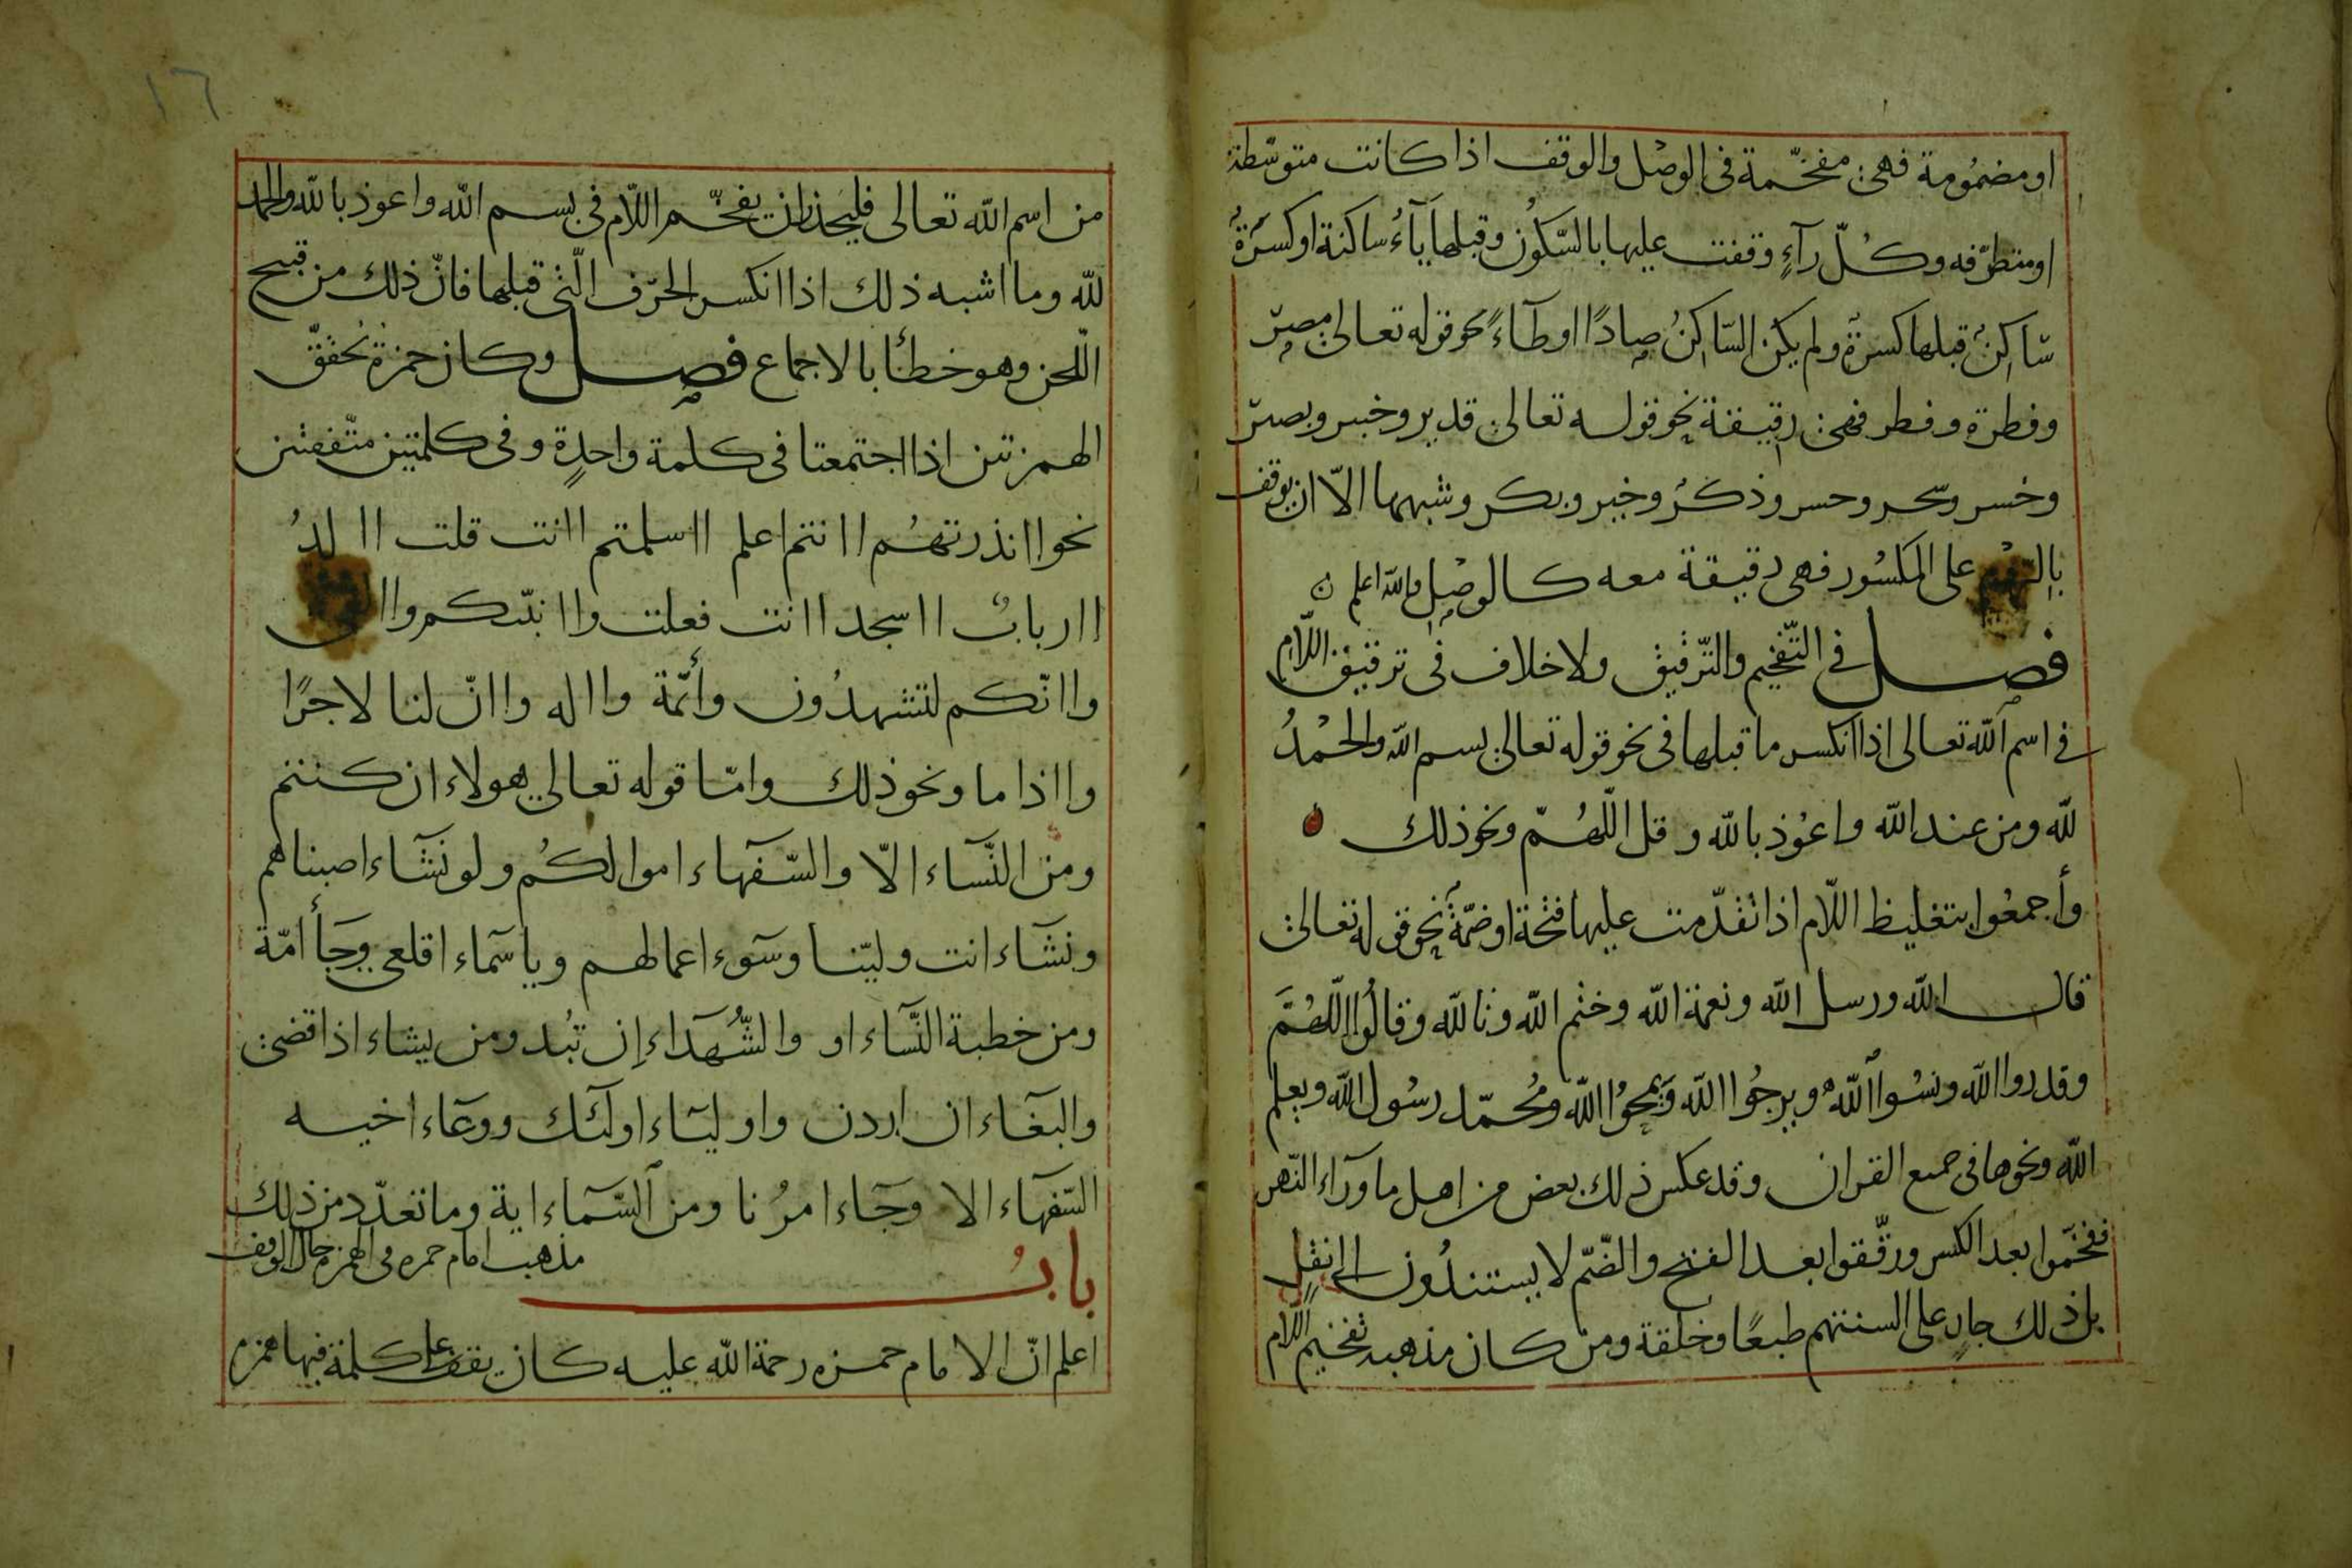 او مضمُومة فهى مفخّمة فى الوصْل والوقف اذا كانت متوسّطة
او متطرّفه وكُلّ رآءٍ وقفت عليها بالسّكُون وقبلها يَآءٌ ساكنة او كسرَةٌ
سّاكِنٌ قبلها كسرةٌ ولم يكن السّاكِنُ صادًا او طآءً نحو قوله تعالى مصرّ
وفطرة وقطر فهى رقيقة نحو قوله تعالى قدير وخبير وبصير
وخسر وسحر وحسر وذكرٌ وخيير وبكر وشبهها الّا ان يوقف
على المكسُور فهى رقيقة معه كالوصْلِ والله اعلم ن
فصل فى التّفخيم والتّرقيق ولا خلاف فى ترقيق اللّام
فى اسم الله تعالى اذا انكسر ما قبلها فى نحو قوله تعالى بسم الله والحمْدُ
لله ومن عند الله واعوُذ بالله وقل اللّهُمّ ونحو ذلك
وأجمعُوا بتغليظ اللّام اذا تقدّمت عليها فتحة او ضمّةٌ نحو قوله تعالى
قال الله ورسل الله ونعمة الله وختم الله وتالله وقالُوا اللّهُمَّ
وقدروا الله ونسُوا ٱللّهَ ويرجُوا الله وَيمحُوا الله ومُحمّد رسُول الله ويعلم
الله ونحوها فى جميع القران وقد عكس ذلك بعض من اهل ما ورآء النّهر
ففخّموا بعد الكسر ورقّقوا بعد الفتح والضّمّ لا يستندُون الى نقلٍ
بل ذلك جارٍ على السنتهم طبعًا وخلقة ومن كان مذهبه تفخيم اللّام
١٦
من اسم الله تعالى فليحذر ان يفخّم اللّام فى بسم الله واعوذ بالله والحمد
لله وما اشبه ذلك اذا انكسر الحرّف الّتى قبلها فانّ ذلك من قبيح
اللّحن وهو خطأ بالاجماع فصل وكان حمزة يُحقّق
الهمزتين اذا اجتمعتا فى كلمة واحدٍة وفى كلمتين متّفقتين
نحو اانذرتهُم اانتم اعلم ااسلمتم اانت قلت االدُ
اارباب ااسجد اانت فعلت واانبّئكم
واانّكم لتشهدُون وأئمّة وااله واانّ لنا لاجرًا
وااذا ما ونحو ذلك وامّا قوله تعالى هولاء ان كنتم
ومن النّسآء الّا والسّفهاء اموالكُم ولو نَشآء اصبناهم
ونشآء انت وليّنا وسَوء اعمالهم وياسمآء اقلعى وجَآ أمّة
ومن خطبة النّسآء او والشّهَدآء اِن تبُد ومن يشاء اذا قضى
والبغآء ان اردن واوليَآء اولئك ووعآء اخيه
السّفهآء الا وجَآء امرُنا ومن ٱلسّمآء اية وما تعدّد من ذلك
بابُ مذهب امام حمزه فى الهمزة حال الوقف
اعلم انّ الامام حمزه رحمة الله عليه كان يقف على كلمة فيها همزه